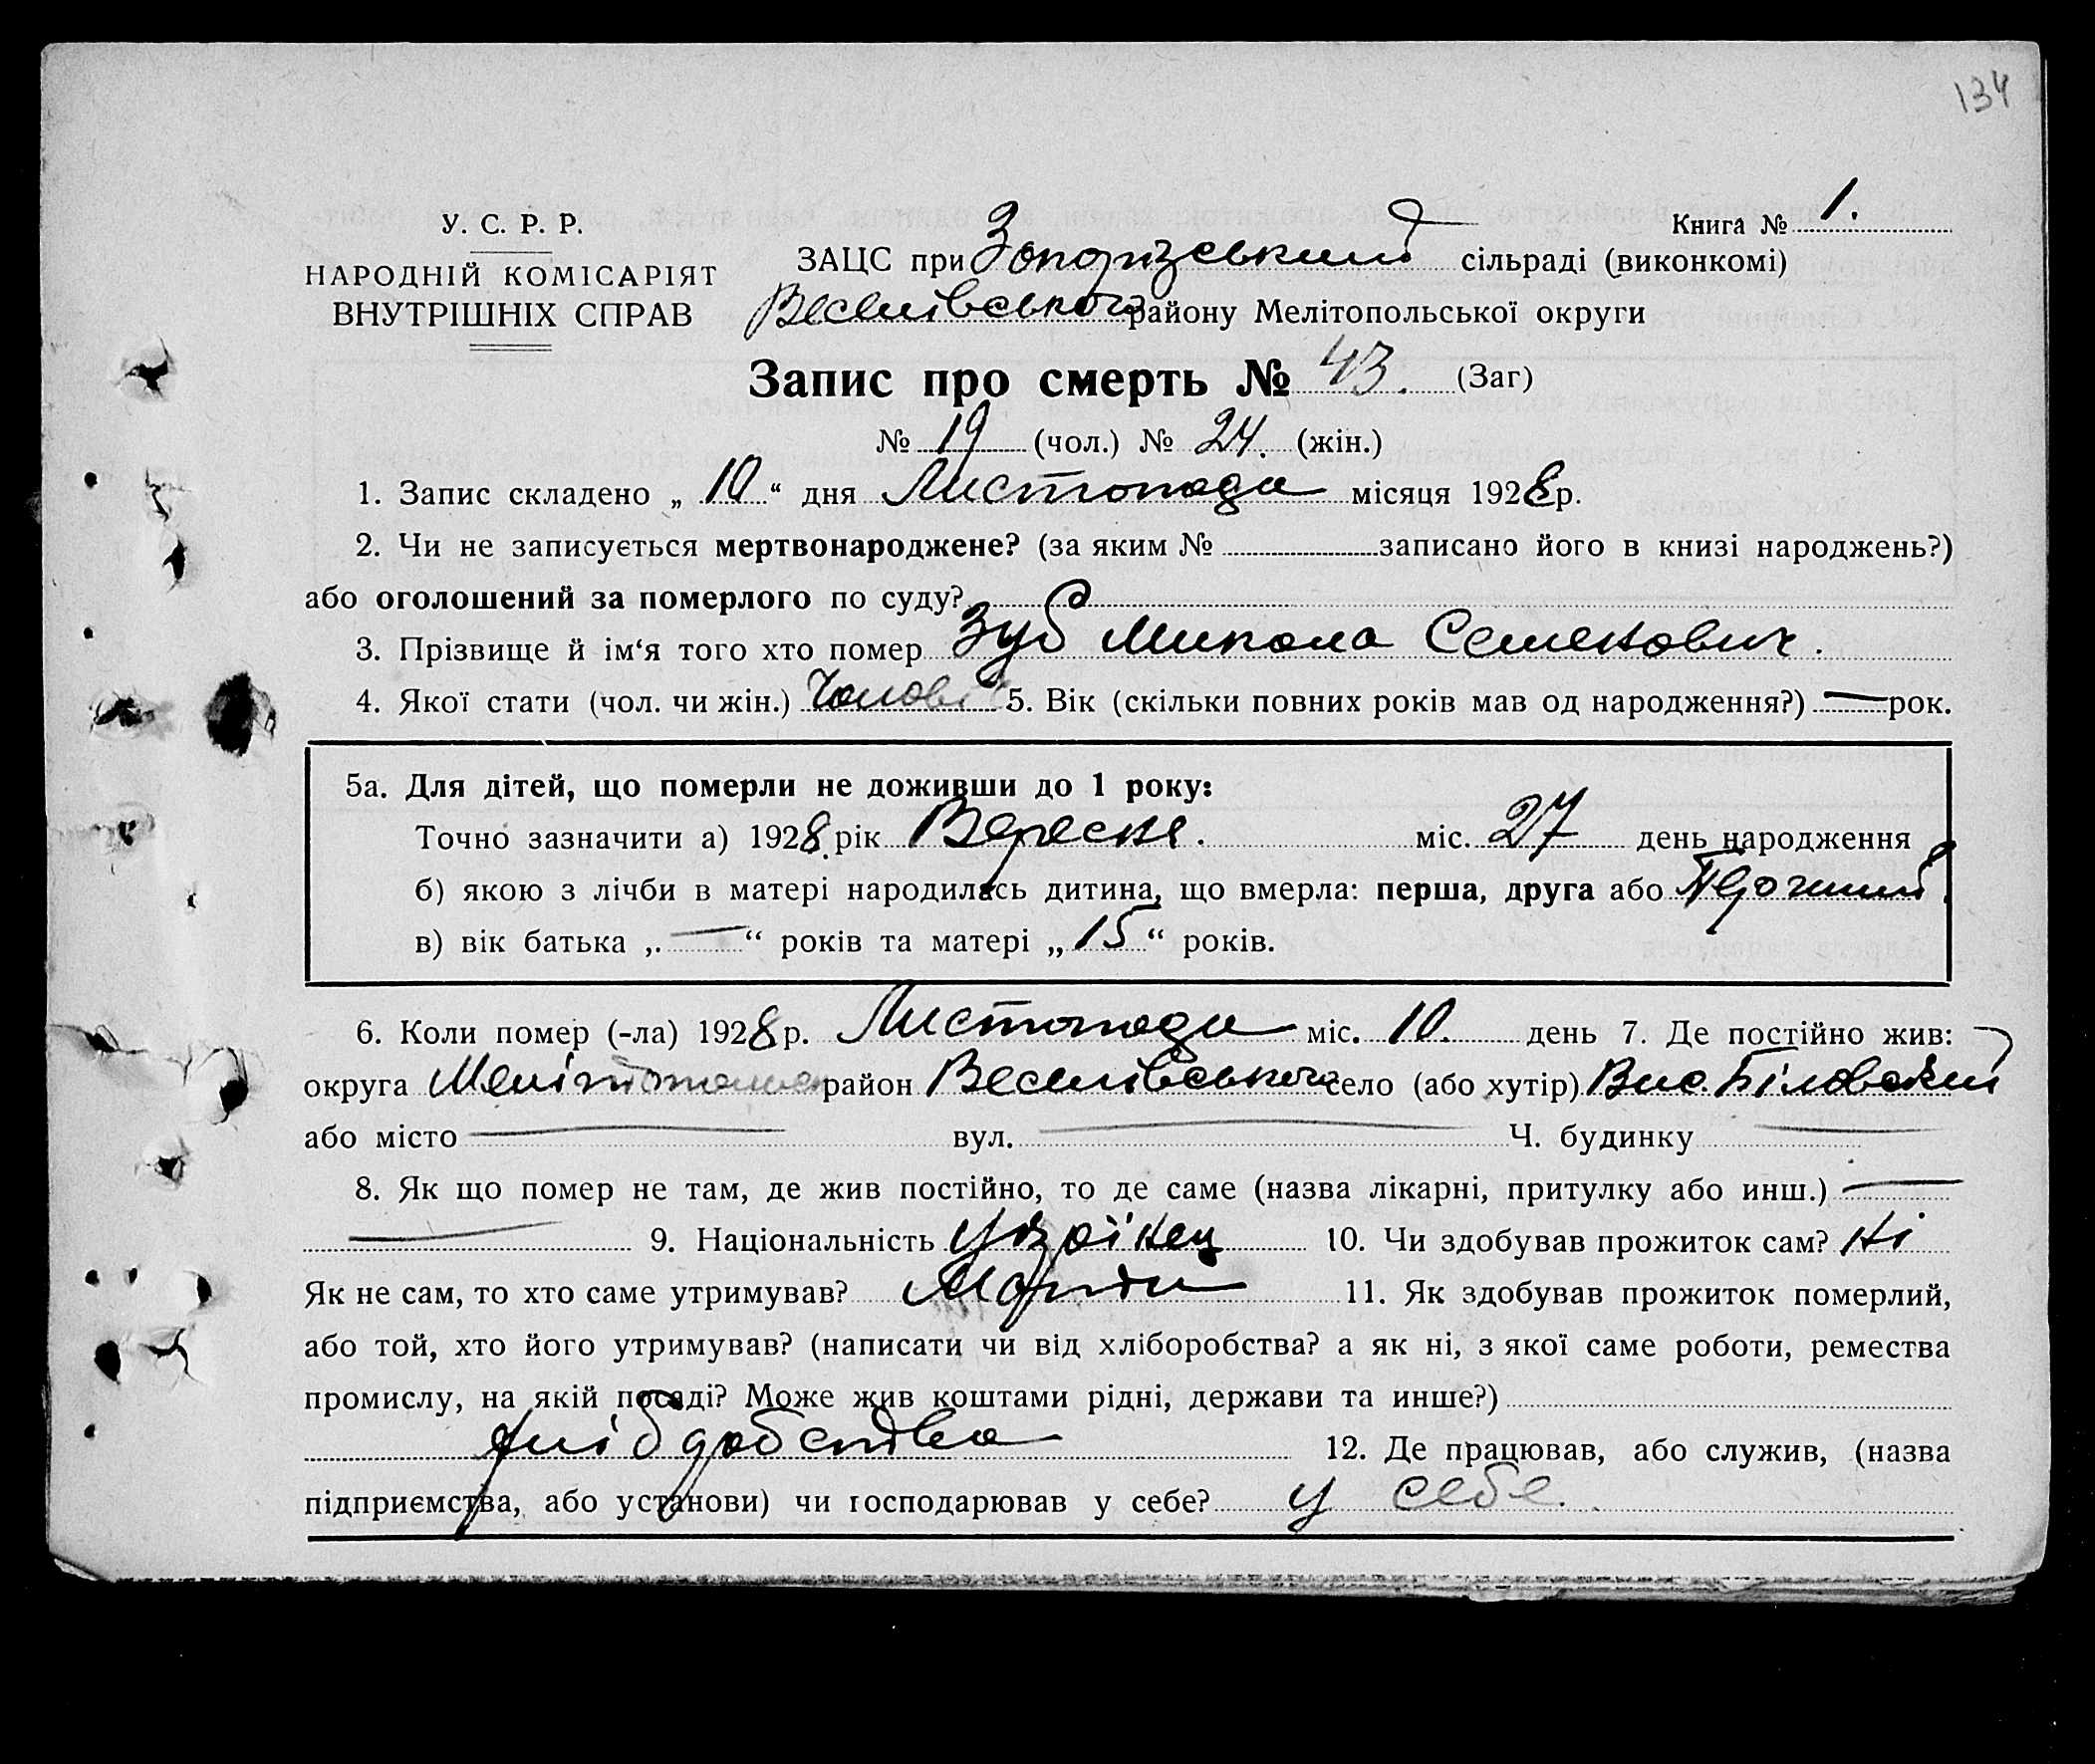 134
У. С. Р. Р.
Книга № 1.
НАРОДНІЙ КОМІСАРІЯТ
ВНУТРІШНІХ СПРАВ
ЗАЦС при Запорізський сільраді (виконкомі)
Веселівського району Мелітопольської округи
Запис про смерть № 43. (Заг)
№ 19 (чол.) № 24. (жін.)
1. Запис складено „ 10 “ дня Листопада місяця 1928 р.
2. Чи не записується мертвонароджене? (за яким № записано його в книзі народжень?)
або оголошений за померлого по суду?
3. Прізвище й ім‘я того хто помер Зуб Микола Семенович.
4. Якої стати (чол. чи жін.) Чолові 5. Вік (скільки повних років мав од народження?) — рок.
5а. Для дітей, що померли не доживши до 1 року:
Точно зазначити а) 1928 рік Вересня. міс. 27 день народження
б) якою з лічби в матері народилась дитина, що вмерла: перша, друга або
в) вік батька „ — “ років та матері „ 15 “ років.
6. Коли помер (-ла) 1928 р. Листопада міс. 10. день 7. Де постійно жив:
округа район Веселівського село (або хутір) Вис.
або місто — вул. — Ч. будинку —
8. Як що помер не там, де жив постійно, то де саме (назва лікарні, притулку або инш.) —
— 9. Національність Українец 10. Чи здобував прожиток сам? Ні
Як не сам, то хто саме утримував? 11. Як здобував прожиток померлий,
або той, хто його утримував? (написати чи від хліборобства? а як ні, з якої саме роботи, ремества
промислу, на якій посаді? Може жив коштами рідні, держави та инше?)
12. Де працював, або служив, (назва
підприємства, або установи) чи господарював у себе? у себе.